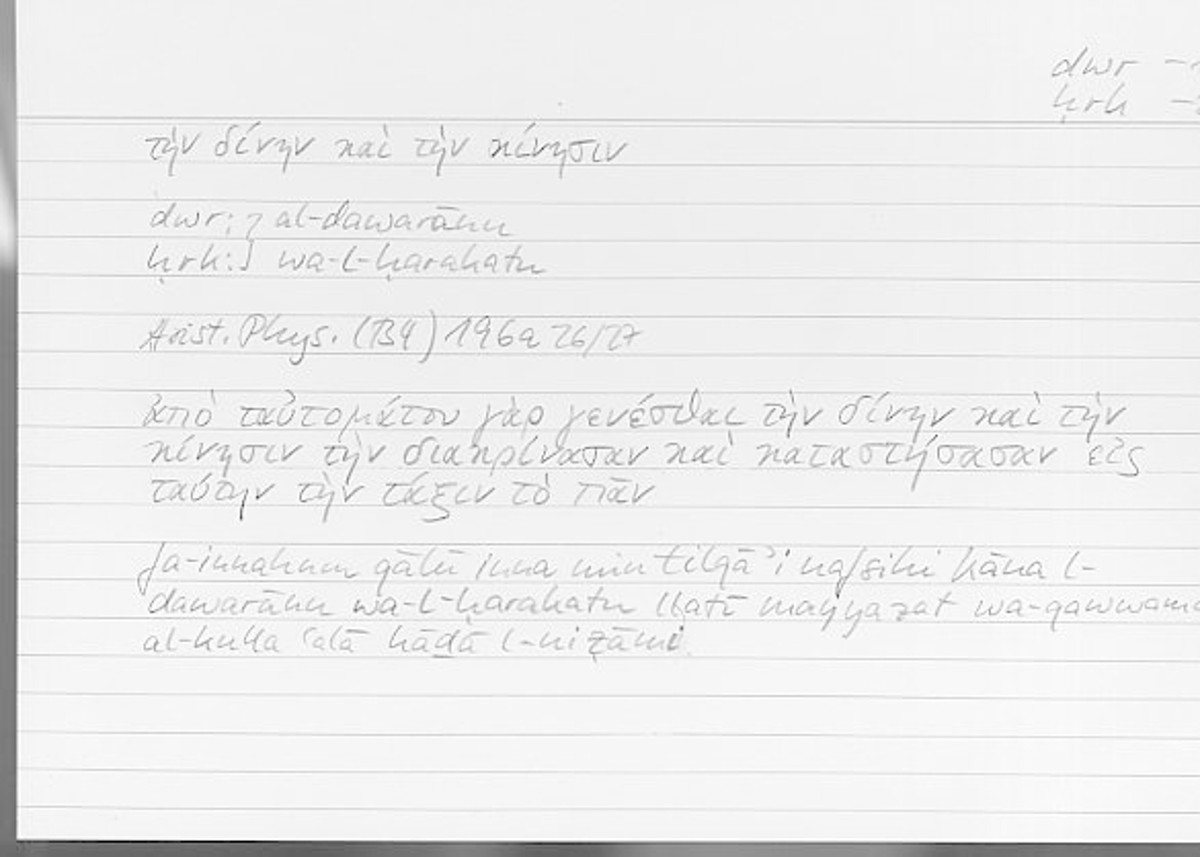 dwr –
ḥrk –
τὴν δίνην καὶ τὴν κίνησιν
dwr: ] al-dawarānu
ḥrk: ] wa-l-ḥarakatu
Arist. Phys. (B4) 196a 26/27
ἀπὸ ταὐτομάτου γὰρ γενέσθαι τὴν δίνην καὶ τὴν
κίνησιν τὴν διακρίνασαν καὶ καταστήσασαν εἰς
ταύτην τὴν τάξιν τὸ πᾶν
fa-innahum qālū inna min tilqāʾi nafsihi kāna l-
dawarānu wa-l-ḥarakatu llatī mayyazat wa-qawwama
al-kulla ʿalā hāḏā l-niẓāmi.